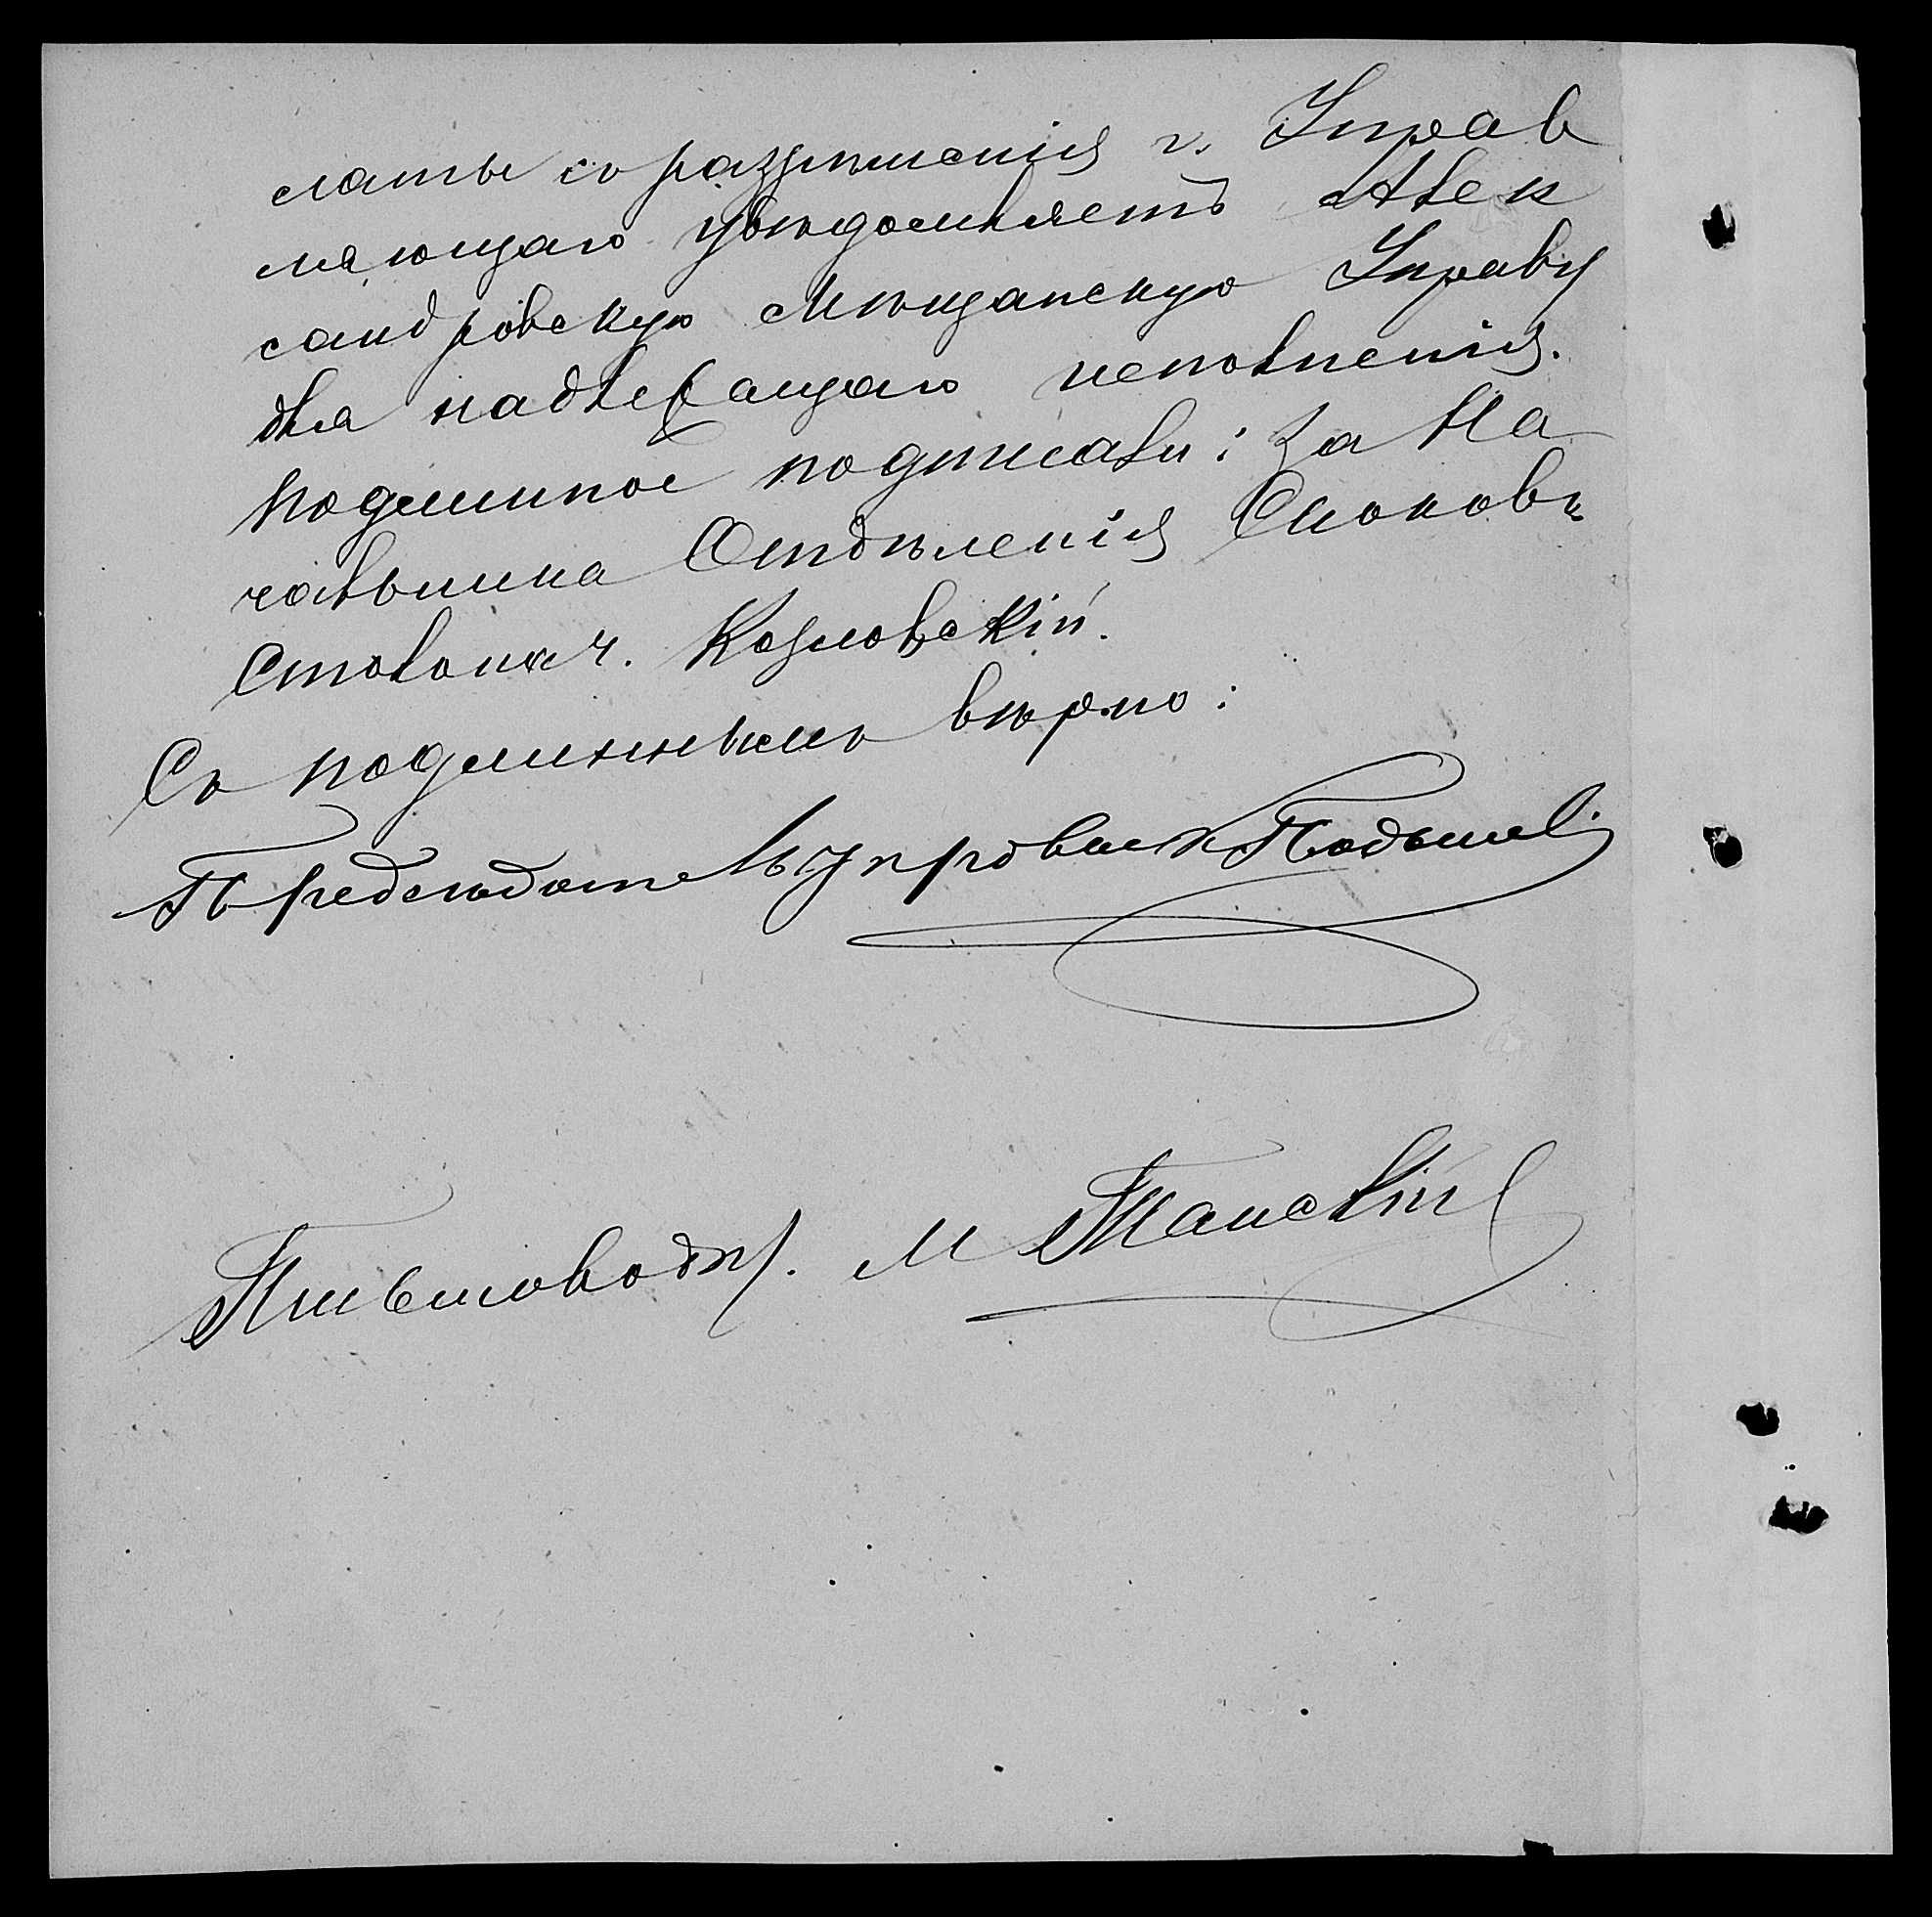 латы съ разрѣшенія г. Управ
ляющаго увѣдомляетъ Алек
сандровскую Мѣщанскую Управу
для надлежащаго исполненія.
Подлинное подписали: За На
чальника Отдѣленія Сноковъ
Столонач. Козловскій.
Съ подлиннымъ вѣрно:
Предсѣдатель управы
Письмовод. М Манскій